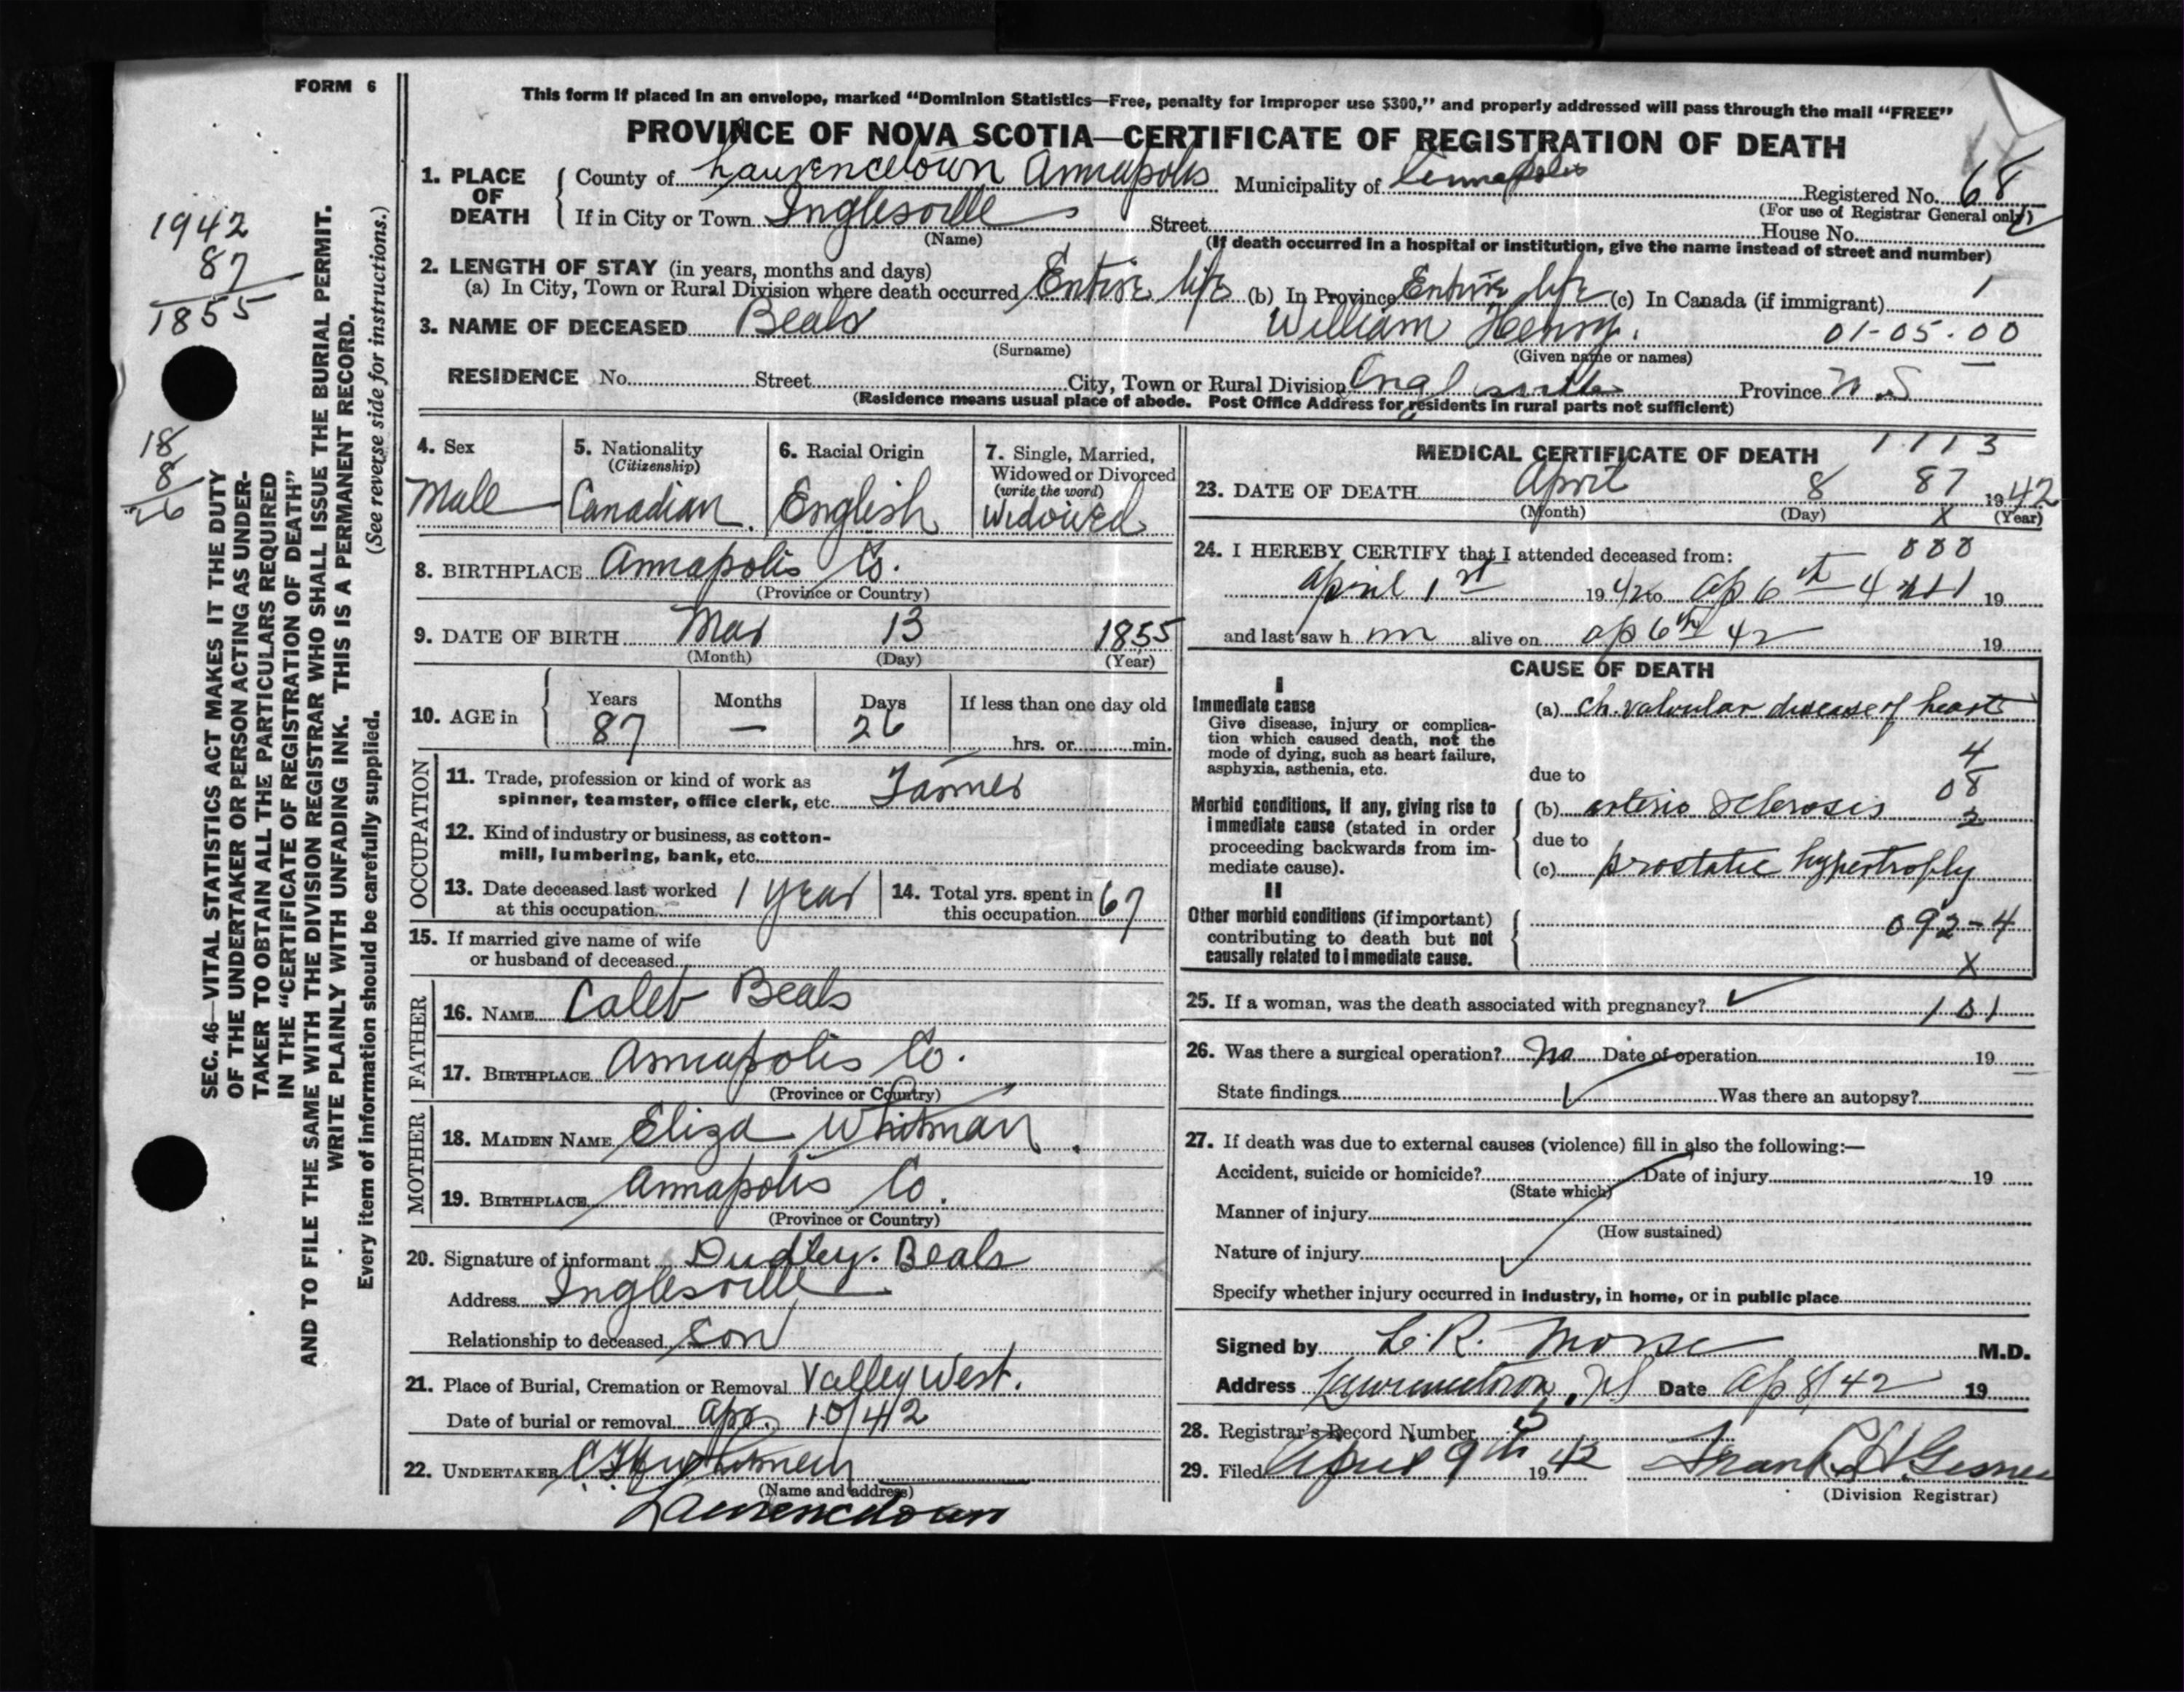 FORM 6
This form if placed in an envelope, marked “Dominion Statistics—Free, penalty for improper use $300,” and properly addressed will pass through the mail “FREE”
PROVINCE OF NOVA SCOTIA—CERTIFICATE OF REGISTRATION OF DEATH
1. PLACE OF DEATH
County of Lawrencetown Annapolis Municipality of Annapolis Registered No. 68
(For use of Registrar General only)
If in City or Town Inglesville Street House No.
(Name) (If death occurred in a hospital or institution, give the name instead of street and number)
2. LENGTH OF STAY (in years, months and days)
(a) In City, Town or Rural Division where death occurred Entire life (b) In Province Entire life (c) In Canada (if immigrant) 1
3. NAME OF DECEASED Beals William Henry. 01-05-00
(Surname) (Given name or names)
RESIDENCE No. Street City, Town or Rural Division Inglesville Province N.S
(Residence means usual place of abode. Post Office Address for residents in rural parts not sufficient)
1942
87
1855
18
8
26
SEC. 46—VITAL STATISTICS ACT MAKES IT THE DUTY
OF THE UNDERTAKER OR PERSON ACTING AS UNDER-
TAKER TO OBTAIN ALL THE PARTICULARS REQUIRED
IN THE “CERTIFICATE OF REGISTRATION OF DEATH”
AND TO FILE THE SAME WITH THE DIVISION REGISTRAR WHO SHALL ISSUE THE BURIAL PERMIT.
WRITE PLAINLY WITH UNFADING INK. THIS IS A PERMANENT RECORD.
Every item of information should be carefully supplied. (See reverse side for instructions.)
4. Sex
Male
5. Nationality
(Citizenship)
Canadian
6. Racial Origin
English
7. Single, Married,
Widowed or Divorced
(write the word)
Widowed
8. BIRTHPLACE Annapolis Co.
(Province or Country)
9. DATE OF BIRTH Mar 13 1855
(Month) (Day) (Year)
10. AGE in
Years Months Days If less than one day old
87 — 26 hrs. or min.
OCCUPATION
11. Trade, profession or kind of work as
spinner, teamster, office clerk, etc. Farmer
12. Kind of industry or business, as cotton-
mill, lumbering, bank, etc.
13. Date deceased last worked
at this occupation 1 year
14. Total yrs. spent in
this occupation 67
15. If married give name of wife
or husband of deceased
FATHER
16. NAME Caleb Beals
17. BIRTHPLACE Annapolis Co.
(Province or Country)
MOTHER
18. MAIDEN NAME Eliza Whitman.
19. BIRTHPLACE Annapolis Co.
(Province or Country)
20. Signature of informant Dudley. Beals
Address Inglesville
Relationship to deceased Son
21. Place of Burial, Cremation or Removal Valley West.
Date of burial or removal Apr. 10/42
22. UNDERTAKER Whitman
(Name and address)
Lawrencetown
MEDICAL CERTIFICATE OF DEATH 1113
23. DATE OF DEATH April 8 87 1942
(Month) (Day) X (Year)
24. I HEREBY CERTIFY that I attended deceased from: 000
April 1st 1942 to Ap 6th 19
and last saw him alive on ap 6th 42 19
CAUSE OF DEATH
I
Immediate cause
Give disease, injury or complica-
tion which caused death, not the
mode of dying, such as heart failure,
asphyxia, asthenia, etc.
(a) Ch. valvular disease of heart
4
due to
08
Morbid conditions, if any, giving rise to
immediate cause (stated in order
proceeding backwards from im-
mediate cause).
(b) arterio sclerosis 2
due to
(c) prostatic hypertrophy
II
Other morbid conditions (if important)
contributing to death but not
causally related to immediate cause.
092-4
X
25. If a woman, was the death associated with pregnancy? ✓ 101
26. Was there a surgical operation? No Date of operation 19
State findings Was there an autopsy?
27. If death was due to external causes (violence) fill in also the following:—
Accident, suicide or homicide? Date of injury 19
(State which)
Manner of injury
(How sustained)
Nature of injury
Specify whether injury occurred in industry, in home, or in public place
Signed by L. R. Morse M.D.
Address Lawrencetown, NS Date Ap 8/42 19
28. Registrar's Record Number 5
29. Filed April 9th 1942 Frank H. Gesner
(Division Registrar)